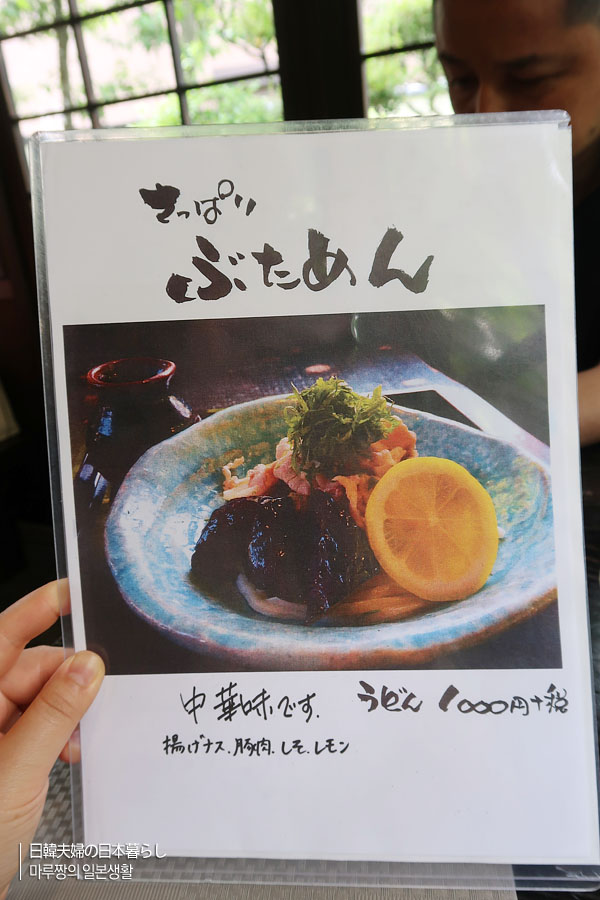 さっぱり
ぶためん
中華味です. うどん 1000円+税
揚げナス、豚肉、しそ、レモン
日韓夫婦の日本暮らし
마루짱의 일본생활